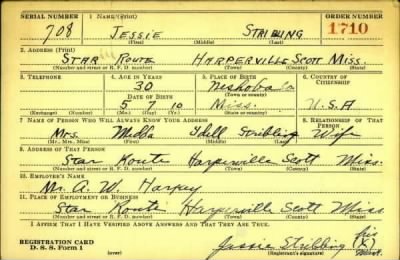 SERIAL NUMBER 1. NAME (Print) ORDER NUMBER
708 JESSIE STRIBLING 1710
(First) (Middle) (Last)
2. ADDRESS (Print)
STAR ROUTE HARPERVILLE SCOTT MISS.
(Number and street or R. F. D. number) (Town) (County) (State)
3. TELEPHONE 4. AGE IN YEARS 5. PLACE OF BIRTH 6. COUNTRY OF CITIZENSHIP
30 Neshoba Co
DATE OF BIRTH (Town or county)
5 7 10 Miss. U.S.A
(Exchange) (Number) (Mo.) (Day) (Yr.) (State or country)
7. NAME OF PERSON WHO WILL ALWAYS KNOW YOUR ADDRESS 8. RELATIONSHIP OF THAT PERSON
Mrs. Idell Stribling Wife
(Mr., Mrs., Miss) (First) (Middle) (Last)
9. ADDRESS OF THAT PERSON
Star Route Harperville Scott Miss.
(Number and street or R. F. D. number) (Town) (County) (State)
10. EMPLOYER'S NAME
Mr. A. W. Harvey
11. PLACE OF EMPLOYMENT OR BUSINESS
Star Route Harperville Scott Miss
(Number and street or R. F. D. number) (Town) (County) (State)
I AFFIRM THAT I HAVE VERIFIED ABOVE ANSWERS AND THAT THEY ARE TRUE.
REGISTRATION CARD
D. S. S. Form 1 (over) Jessie Stribling his (X) mark
(Registrant's signature)